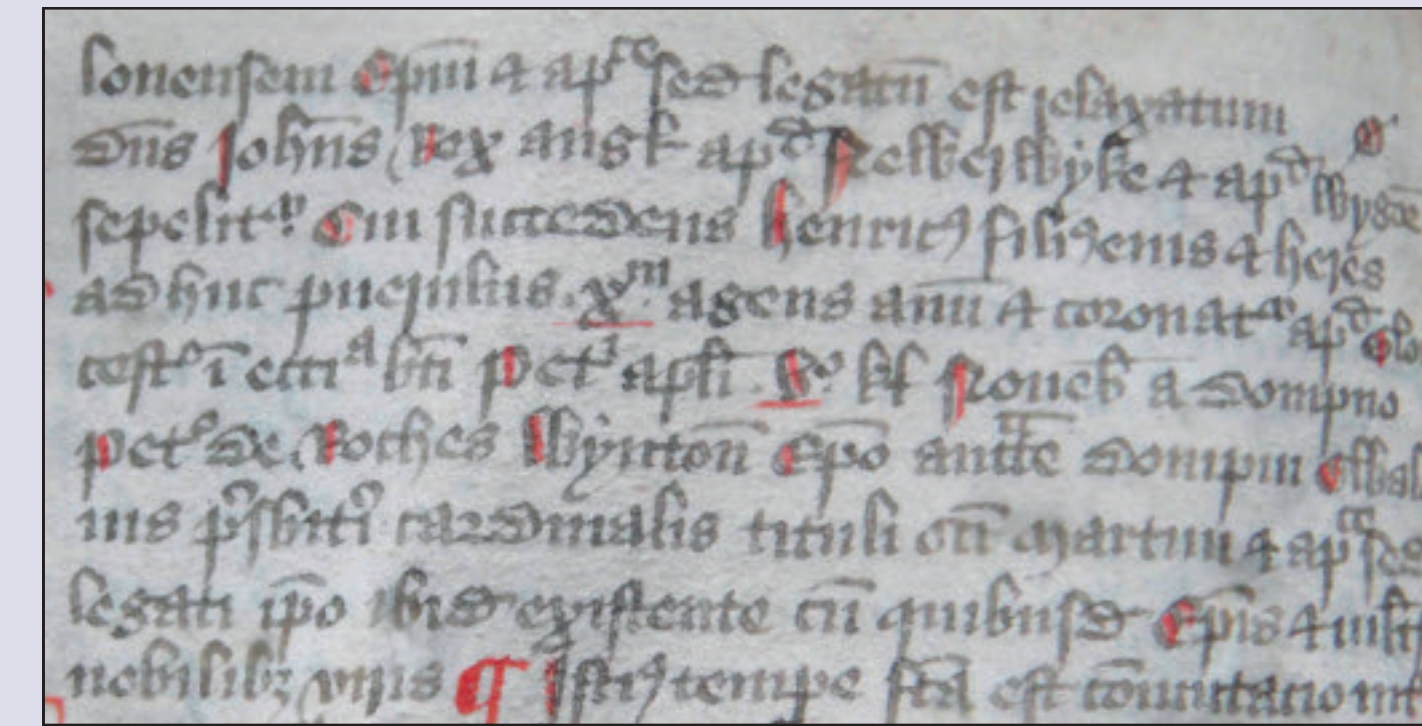 lonensem Epm̄ ⁊ apᶜᵉ sed legatū est relaxatum
dn̄s Joħn̄s Rex angł apᵈ Newerwyke ⁊ apᵈ Wygor̄
sepelitʳ Cui succedens henricꝰ filiꝰ eius ⁊ heres
adhuc puerulus . xᵐ . agens annū ⁊ coronatʳ apᵈ Glo
cestᵒ ī eccīᵃ btī Petⁱ apłi . vᵒ . kł Nouēb a dompno
Petᵒ de Roches Wynton̄ Epō auctē dompni Gwal
nis p̄sbiti cardinalis tituli scī Martini ⁊ apᶜᵉ sed
legati ip̄o ibid existente cū quibusd Ep̄is ⁊ młt
nobilibꝫ viris ¶ Istiꝰ tempe fcā est